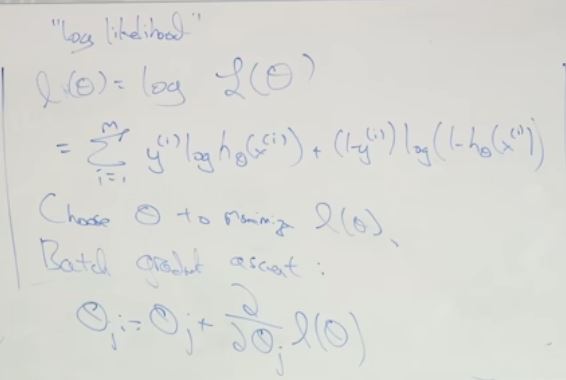 "log likelihood"
l(θ) = log L(θ)
= Σ_{i=1}^{m} y^{(i)} log h_θ(x^{(i)}) + (1-y^{(i)}) log(1-h_θ(x^{(i)})
Choose θ to l(θ).
Batch gradient ascent :
θ_j := θ_j + ∂/∂θ_j l(θ)